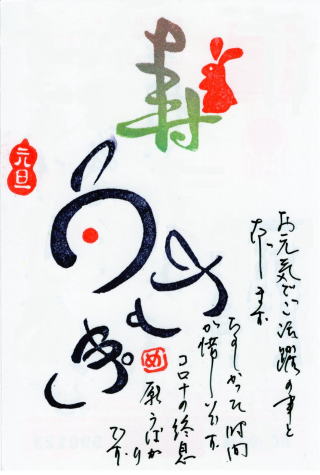 寿
元旦
うさぎ
め
お元気でご活躍の事と
存じます
時間
が惜しいです
コロナの終息
願うばかり
です